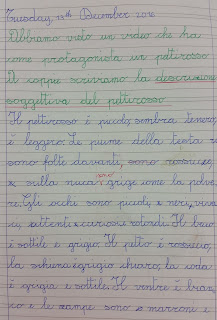 Tuesday, 13th December 2016
Abbiamo visto un video che ha
come protagonista un pettirosso
Il coppie scriviamo la descrizione
soggettiva del pettirosso.
Il pettirosso è piccolo, sembra tenero,
è leggero. Le piume della testa
sono folte davanti, sono rossicce,
e sulla nuca sono grige come la polve
re. Gli occhi sono piccoli, e neri, viva
ci, attenti e curiosi e rotondi. Il becco
è sottile e grigio. Il petto è rossiccio,
la schiena è grigio chiaro, la coda
è grigia e sottile. Il ventre è bian
co e le zampe sono marroni e